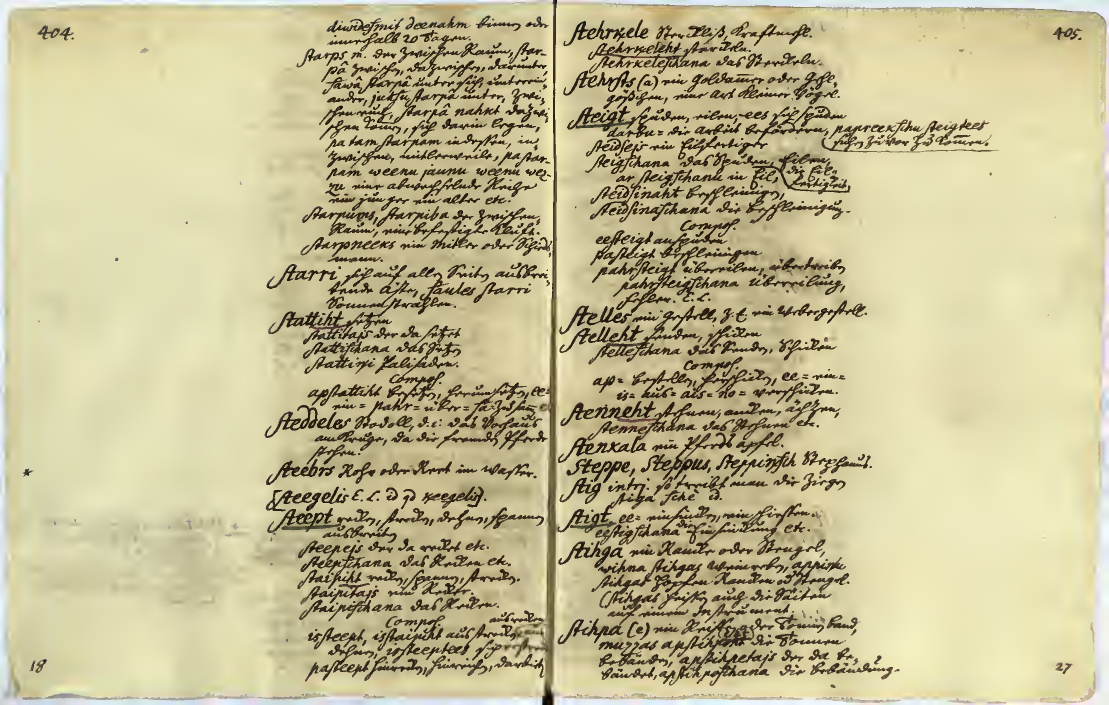 404.
diwidesmit deenahm binnen oder
innerhalb 20 Tagen.
starps m. der Zwischen Raum, star-
pâ zwischen, dazwischen, darunter,
sawâ starpâ unter sich, unterein-
ander, juhsu starpâ unter, zwi-
schen euch, starpâ nahkt dazwi-
schen kommen, sich darin legen,
pa tam starpam indessen, in-
zwischen, mitlerweile, pa star-
pam weenu jaunu weenu wez-
zu eine abwechselnde Reihe
ein junger ein alter etc.
starpums, starpiba der Zwischen
Raum, eine befestigte Kluft.
starpneeks ein Mitler oder Schieds-
mann.
starri sich auf allen Seiten ausbrei-
tende Äste, saules starri
Sonnenstrahlen.
stattiht setzen
stattitajs der da setzet
stattischana das Setzen
stattini Palisaden.
Compos.
apstattiht besetzen, herumsetzen, ee-
ein- pahr- über-
steddeles Stadoll, d.i. das Vorhaus
am Kruge, da die fremden Pferde
stehen.
steebrs Rohr oder Reet im Wasser.
[steegelis E. L. id qd keegelis].
steept recken, strecken, dehnen, spannen
ausbreiten
steepejs der da recket etc.
steepschana das Recken etc.
staipiht recken, spannen, strecken.
staipitajs ein Recker.
staipischana das Recken.
Compos. ausrecken
issteept, isstaipiht ausstrecken
dehnen, issteeptees sich
pasteept hinrecken, hinreichen,
18
stehrkele Sterkliß, Kraftmehl.
stehrkeleht stärkeln.
stehrkeleschana das Sterkeln.
stehrsts (a) ein Goldammer oder Gehl-
gößchen, eine Art kleiner Vögel.
steigt spuden, eilen, -ees sich spuden
darbu = die Arbeit befördern, papreekschu steigtees
suchen zuvor zu kommen.
steidsejs ein Eilfertiger
steigschana das Spuden, Eilen,
ar steigschanu in Eil, die Eil-
fertigkeit
steidsinaht beschleinigen,
steidsinaschana die Beschleinigung.
Compos.
eesteigt anspuden
pasteigt beschleinigen
pahrsteigt übereilen, übertreiben
pahrsteigschana Übereilung,
Fehler. E. L.
stelles ein Gestell, z. E. ein Webergestell.
stelleht senden, schicken
stelleschana das Senden, Schicken
Compos.
ap- bestellen, herschicken, ee- ein-
is- aus- ais- no- verschicken.
stenneht stehnen, anken, ächzen,
stenneschana das Stehnen etc.
stenkala ein Pferds apfel.
Steppe, Steppus, Steppinsch Stephanus.
stig intrj. so treibt man die Ziegen
stiga sche id.
stigt, ee- einsinken, einschiessen.
eestigschana die Einsinkung etc.
stihga eine Ranke oder Stengel,
wihna stihgas Weinreben, appinu
stihgas Hopfen Ranken od. Stengel.
(stihgas heißen auch die Saiten
auf einem Instrument.
stihpa (e) ein Reiffen oder Tonnen band,
muzzas apstihpoht die Tonnen
bebänden, apstihpetajs der da be-
bändet, apstihposchana die Bebändung.
405.
27